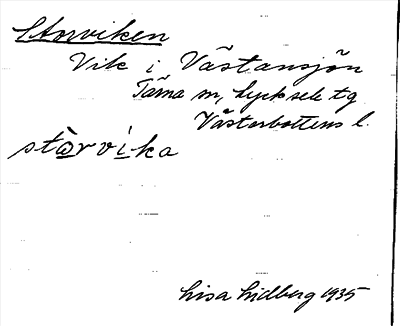 Storviken
Vik i Västansjön
Tärna sn, Lycksele tg
Västerbottens l.
stòrvíka
Lisa Lidberg 1935